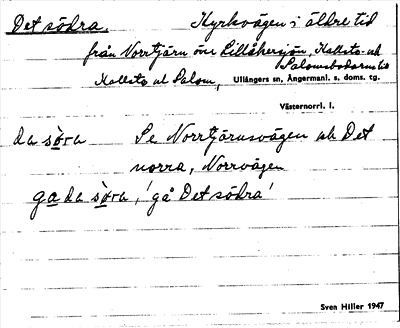 Det södra. Kyrkvägen i äldre tid
från Norrtjärn över Lillåkersjön, Kallsta och
Salomsbodarna till
Kallsta och Salom, Ullångers sn, Ångermanl. s. doms. tg.
Västernorrl. l.
da söra Se Norrtjärnsvägen och Det
norra, Norrvägen
ga da söra, 'gå Det södra'
Sven Hiller 1947